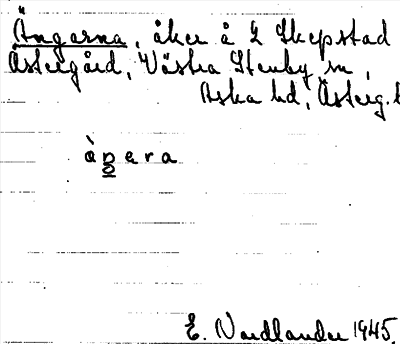 Ängarna, åker å 2 Skepstad
Östergård, Västra Stenby sn,
Aska hd, Österg. l
àṉera
E. Nordlander 1945.